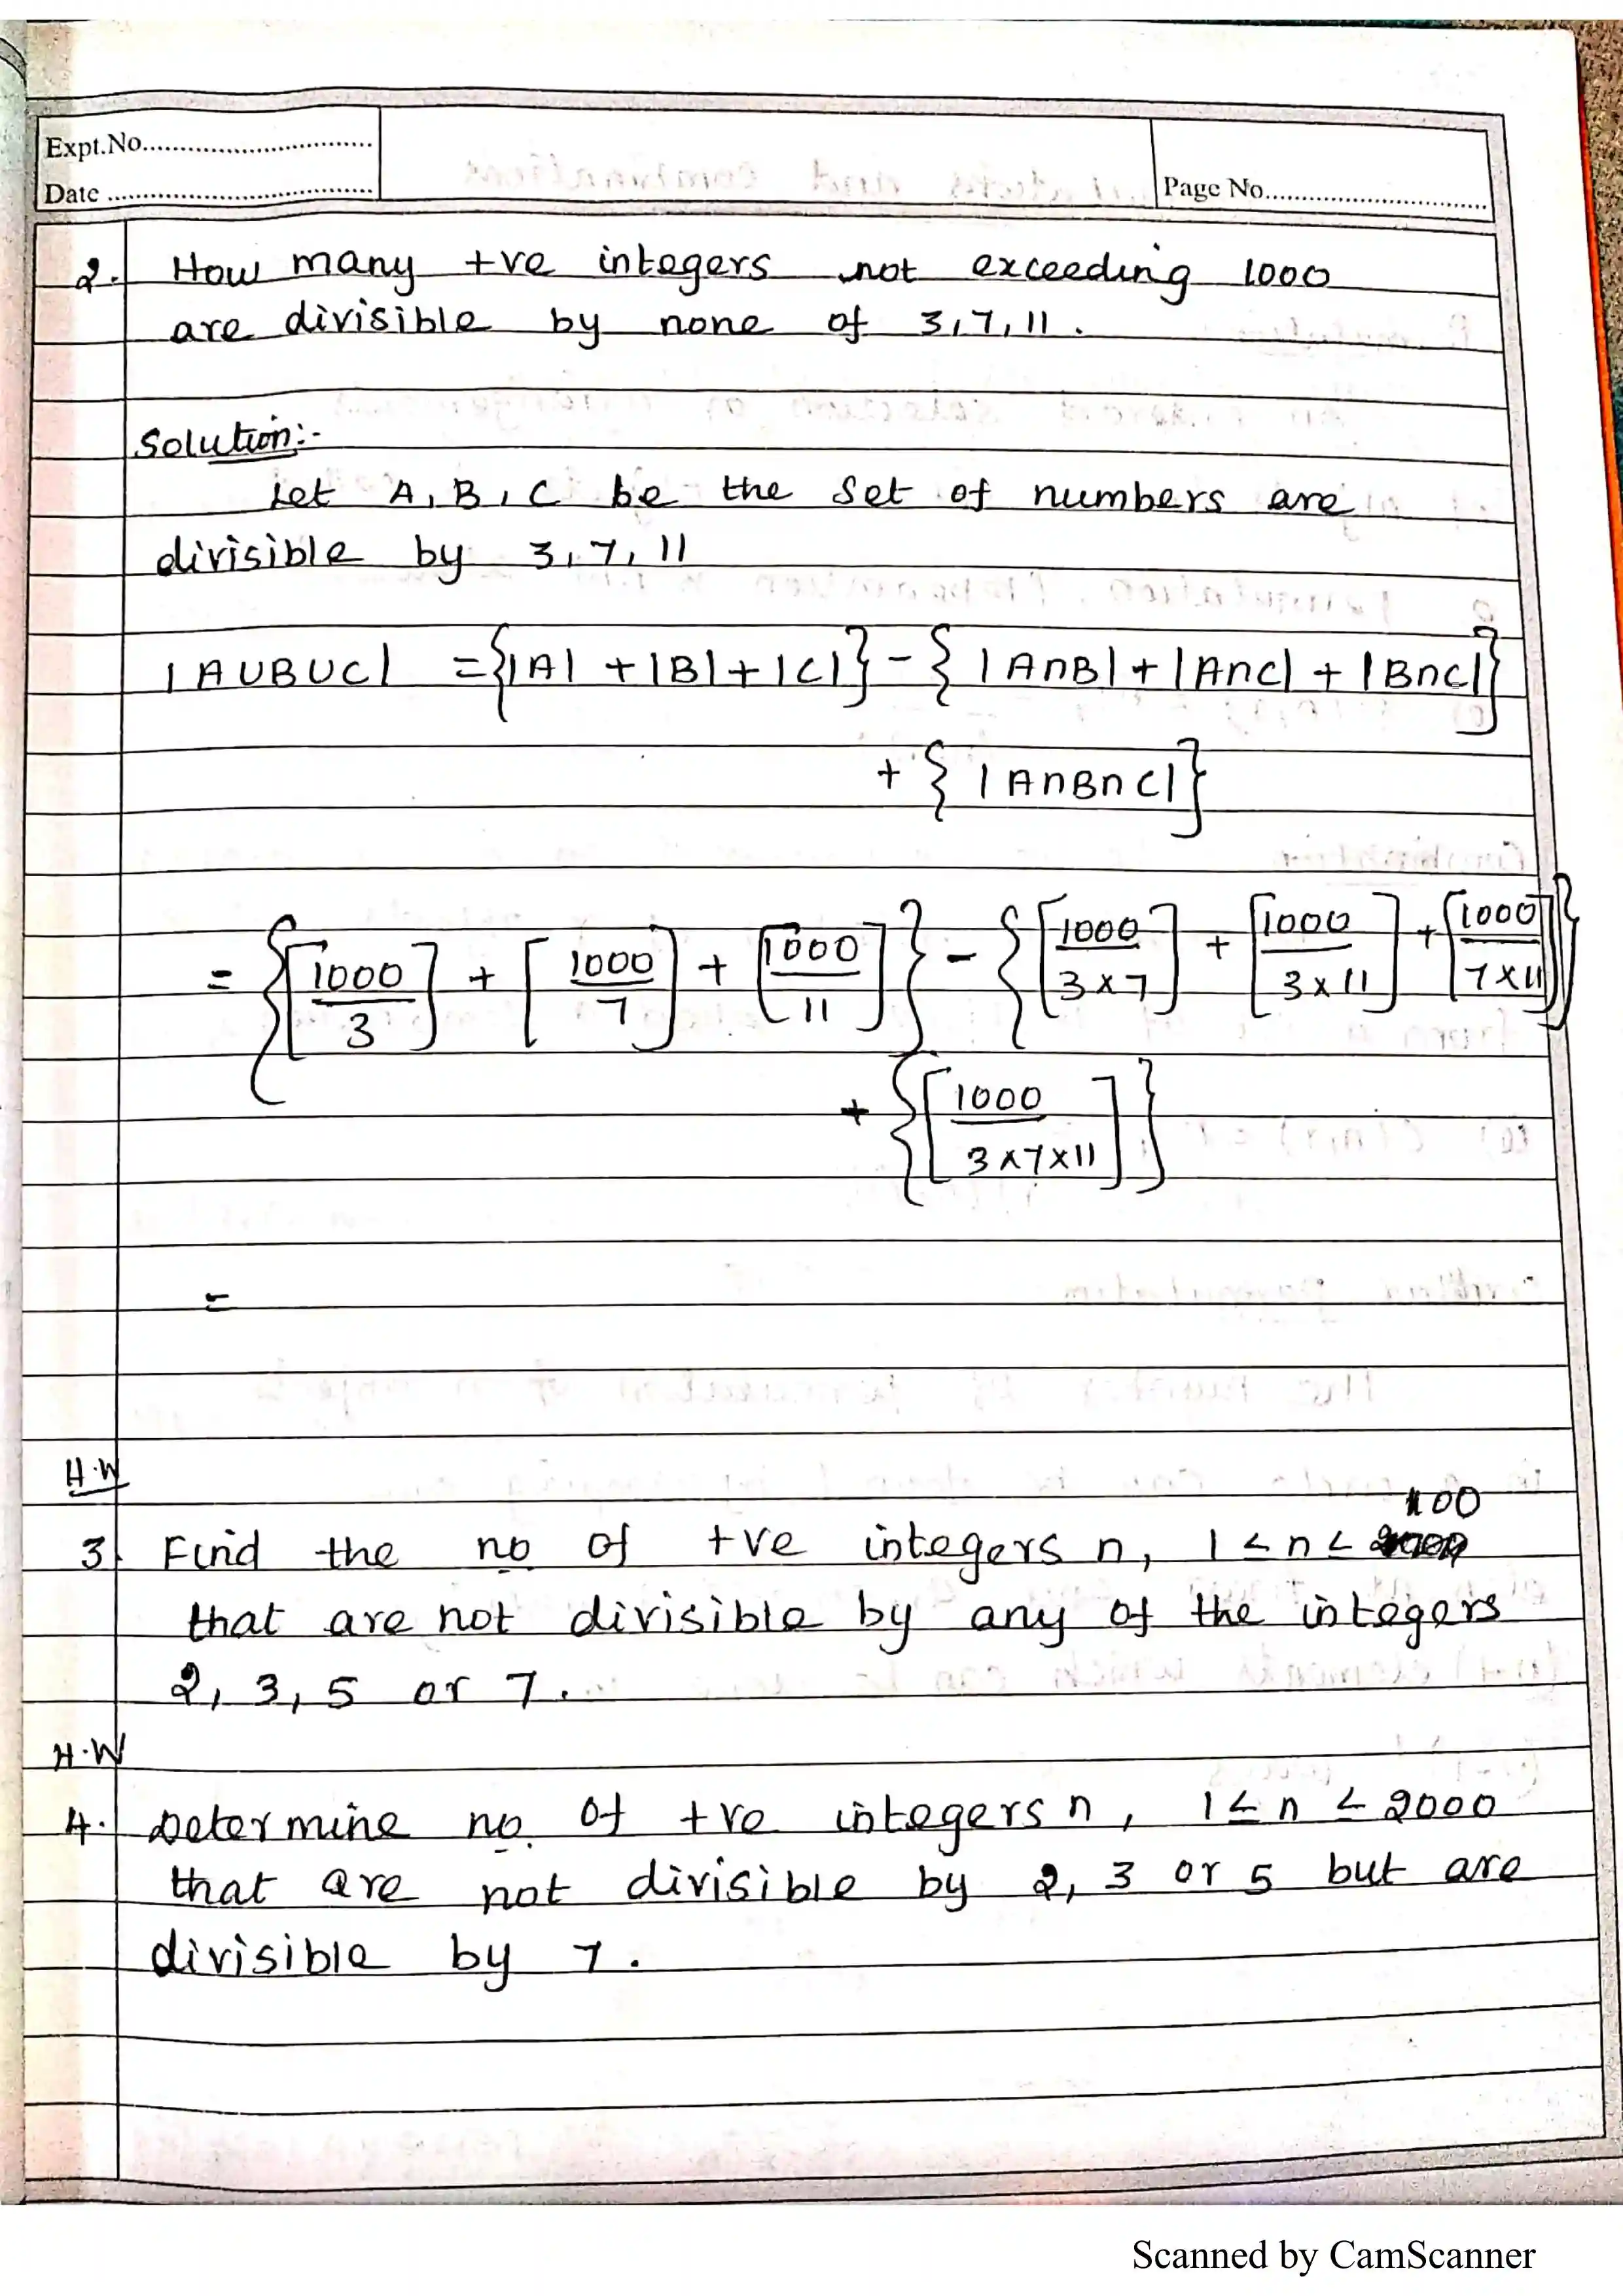 Expt.No..............................
Date ..................................
Page No..............................
2. How many +ve integers not exceeding 1000
are divisible by none of 3,7,11.
Solution:-
Let A, B, C be the set of numbers are
divisible by 3, 7, 11
|A∪B∪C| = {|A| + |B| + |C|} - {|A∩B| + |A∩C| + |B∩C|}
+ {|A∩B∩C|}
= {[1000/3] + [1000/7] + [1000/11]} - {[1000/3×7] + [1000/3×11] + [1000/7×11]}
+ {[1000/3×7×11]}
=
H.W
3. Find the no of +ve integers n, 1 ≤ n ≤ 100
that are not divisible by any of the integers
2, 3, 5 or 7.
H.W
4. Determine no. of +ve integers n, 1 ≤ n ≤ 2000
that are not divisible by 2, 3 or 5 but are
divisible by 7.
Scanned by CamScanner